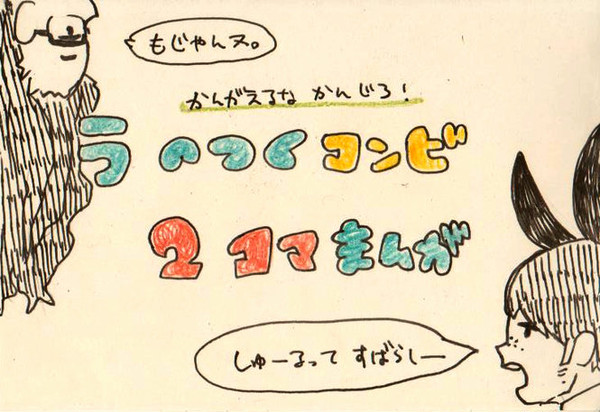 もじゃんヌ。
かんがえるな かんじろ!
うへのつくコンビ
2コマまんが
しゅーるって すばらしー